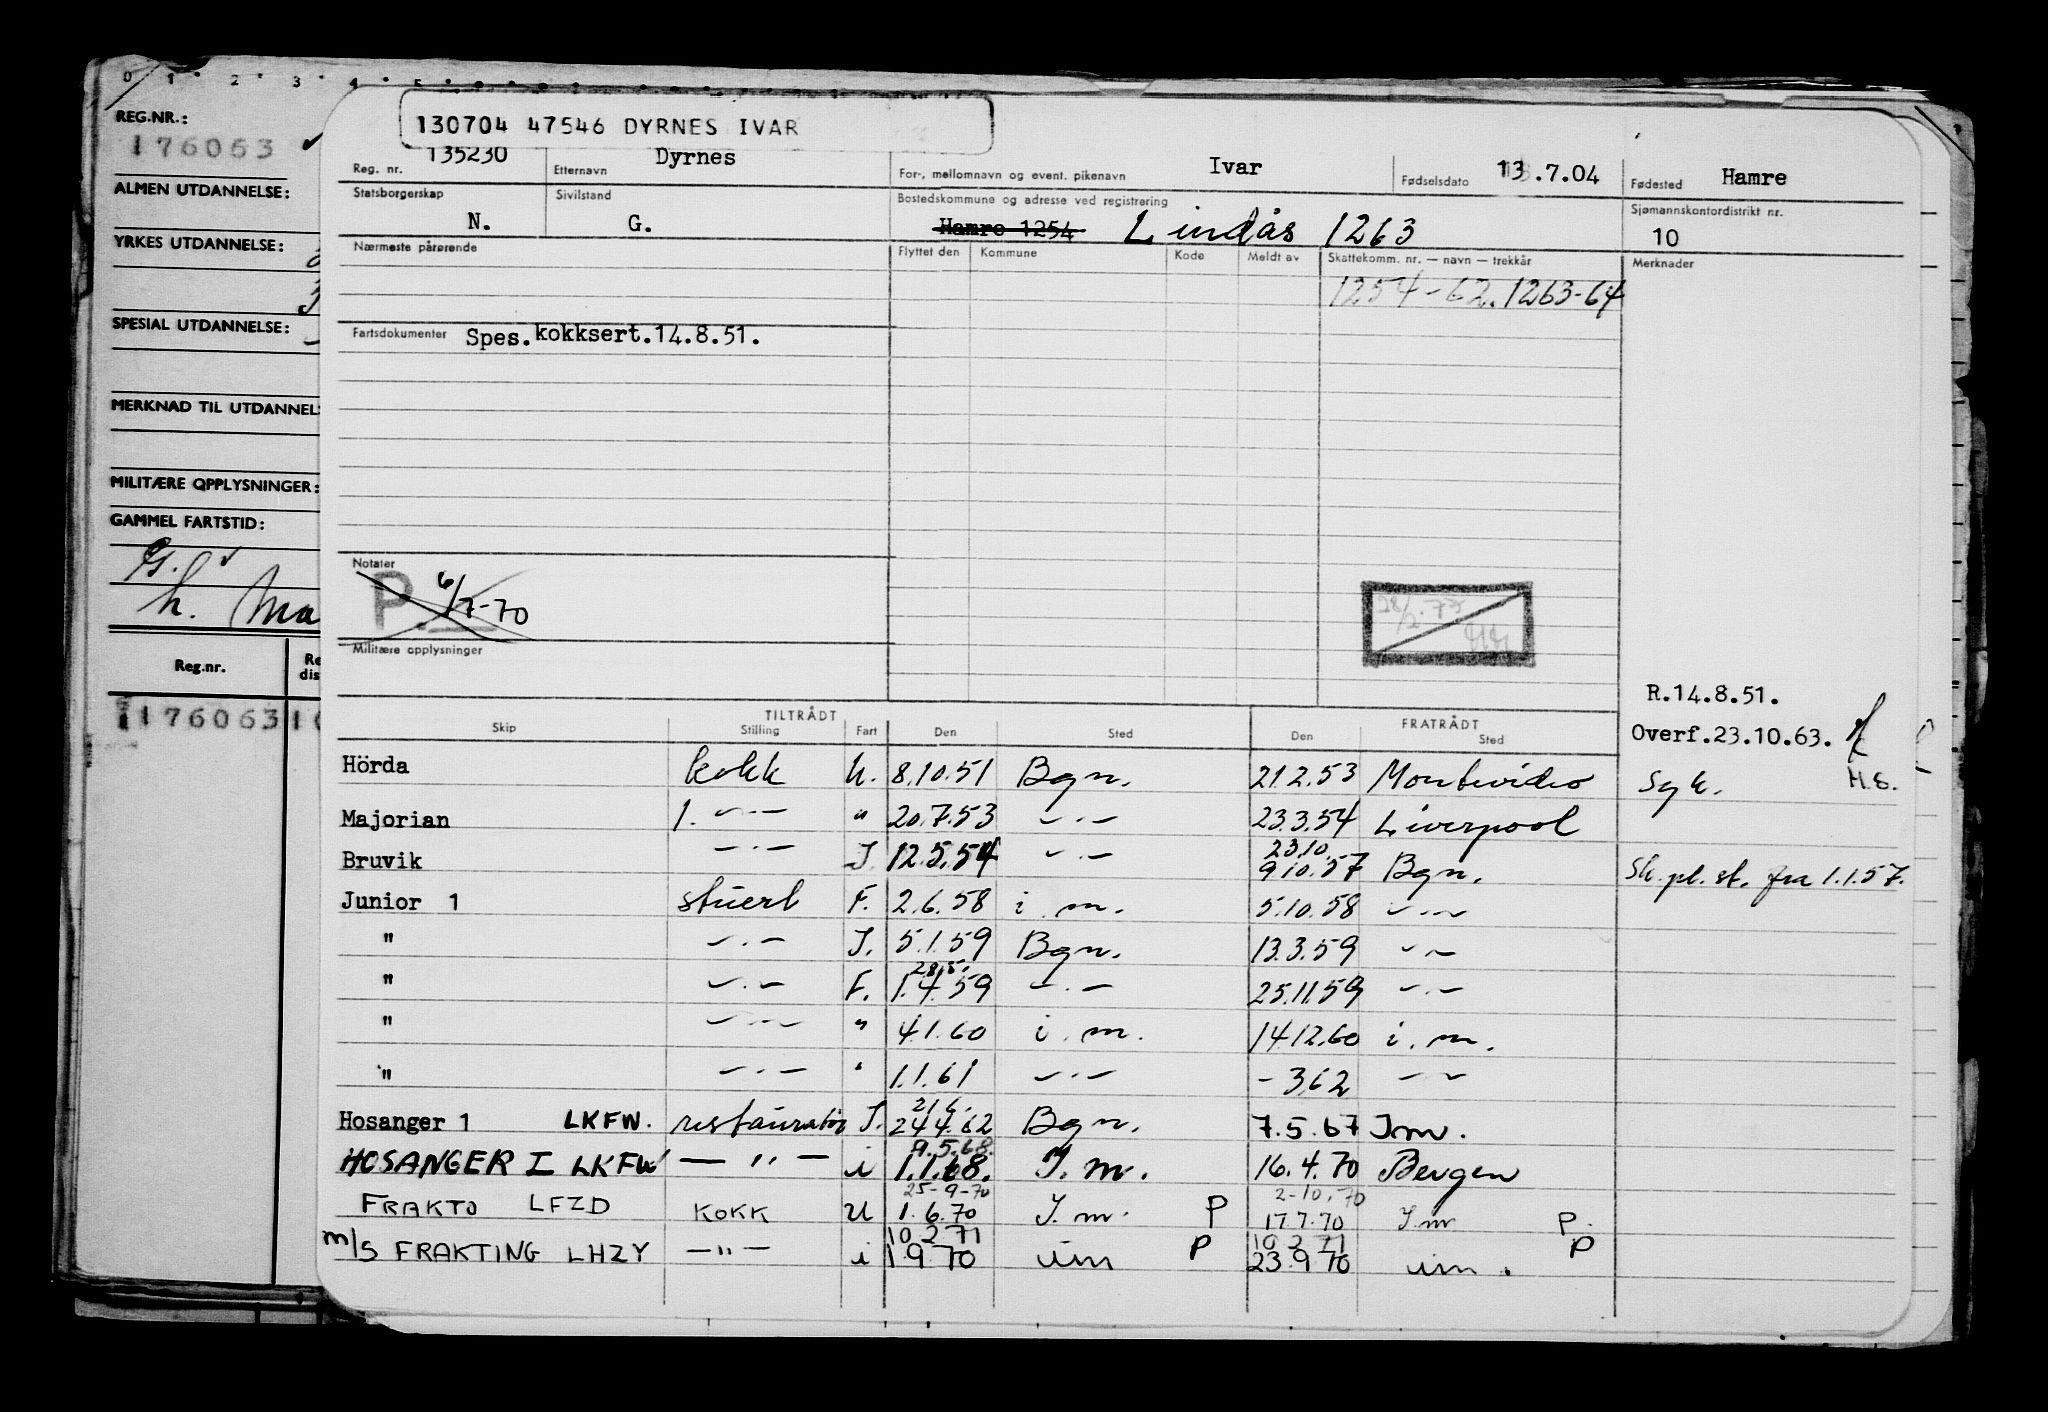 0 1 2 3 4 5
REG.NR.:
176063
ALMEN UTDANNELSE:
YRKES UTDANNELSE:
SPESIAL UTDANNELSE:
MERKNAD TIL UTDANNEL
MILITÆRE OPPLYSNINGER:
GAMMEL FARTSTID:
h. Ma
Reg.nr. Re dis
176063 10
130704 47546 DYRNES IVAR
Reg. nr. 135230 Etternavn Dyrnes For-, mellomnavn og event. pikenavn Ivar Fødselsdato 13.7.04 Fødested Hamre
Statsborgerskap N. Sivilstand G. Bostedskommune og adresse ved registrering Hamre 1254 Lindås 1263 Sjømannskontordistrikt nr. 10
Nærmeste pårørende Flyttet den Kommune Kode Meldt av Skattekomm. nr. — navn — trekkår Merknader
1254-62. 1263-64
Fartsdokumenter Spes.kokksert.14.8.51.
Notater
P. 6/7-70
28/2.77
Militære opplysninger
R.14.8.51.
Overf.23.10.63.
H.S.
TILTRÅDT FRATRÅDT
Skip Stilling Fart Den Sted Den Sted
Hörda kokk U. 8.10.51 Bgn. 21.2.53 Montevideo Syk.
Majorian 1. —"— " 20.7.53 —"— 23.3.54 Liverpool
23.10.
Bruvik —"— I. 12.5.54 —"— 9.10.57 Bgn. Sk.pl.st. fra 1.1.57.
Junior 1 stuert F. 2.6.58 i. m. 5.10.58 —"—
" —"— I. 5.1.59 Bgn. 13.3.59 —"—
28.5.
" —"— F. 1.4.59 —"— 25.11.59 —"—
" —"— " 4.1.60 i. m. 14.12.60 i. m.
" —"— " 1.1.61 —"— -3.62 —"—
21.6.
Hosanger 1 LKFW. restauratør I. 24.4.62 Bgn. 7.5.67 Im.
9.5.68.
HOSANGER I LKFW —"— i 1.1.68. I. m. 16.4.70 Bergen
25-9-70 2-10.70
FRAKTO LFZD KOKK U 1.6.70 I. m. P 17.7.70 I.m P.
10 2 71 10 2 71
m/s FRAKTING LHZY —"— i 1 9 70 im P 23.9 70 im. P